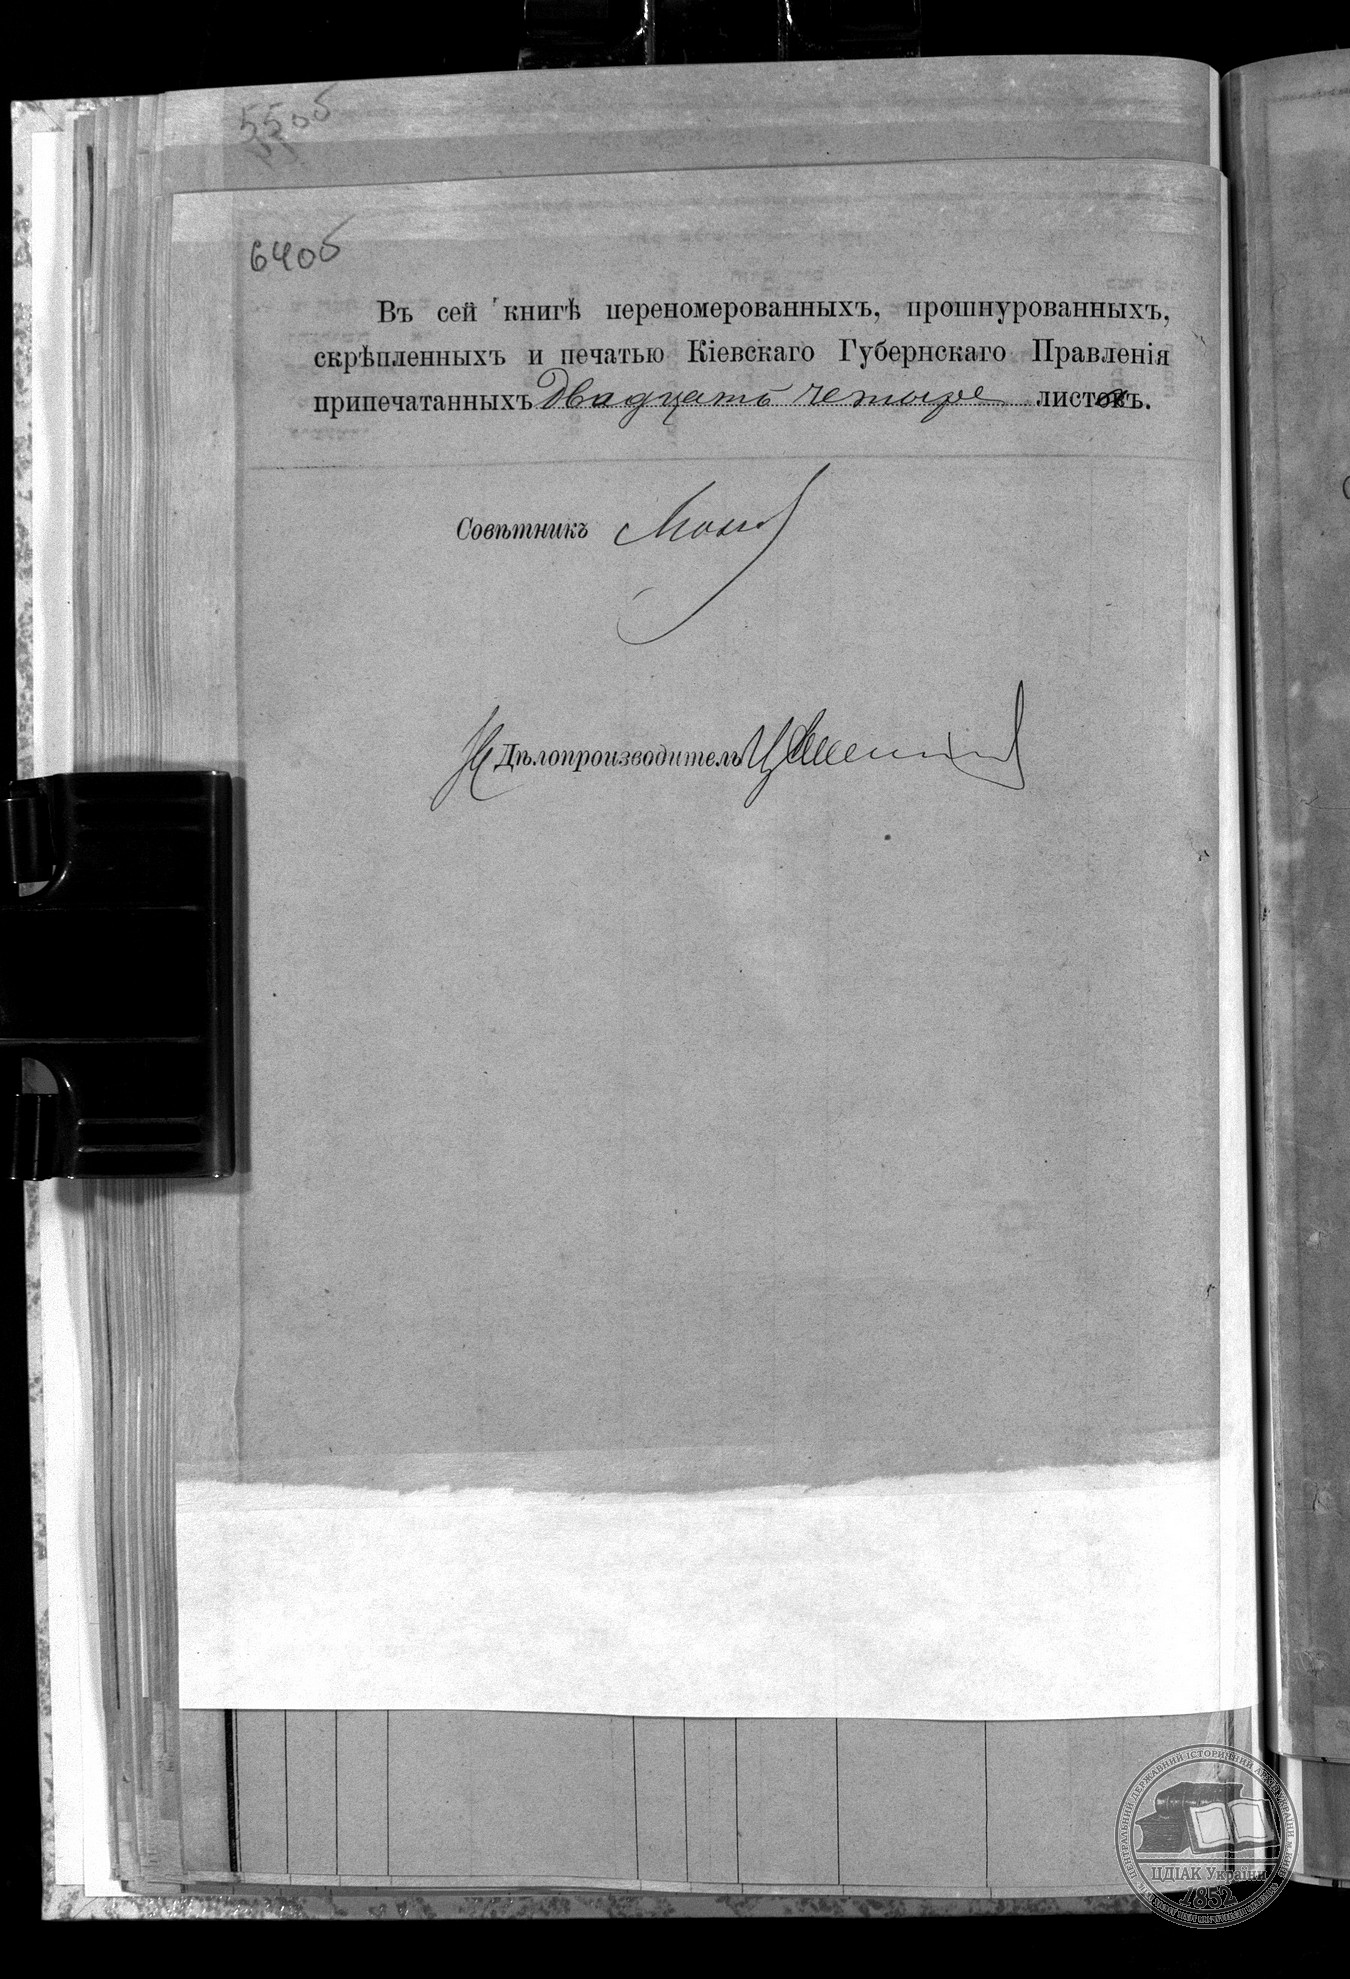 55об
64об
Въ сей книгѣ переномерованныхъ, прошнурованныхъ,
скрѣпленныхъ и печатью Кіевскаго Губернскаго Правленія
припечатанныхъ Двадцать четыре листа.
Совѣтникъ
И Дѣлопроизводитель
ЦЕНТРАЛЬНИЙ ДЕРЖАВНИЙ ІСТОРИЧНИЙ АРХІВ УКРАЇНИ м. КИЇВ
ЦДІАК України
1852